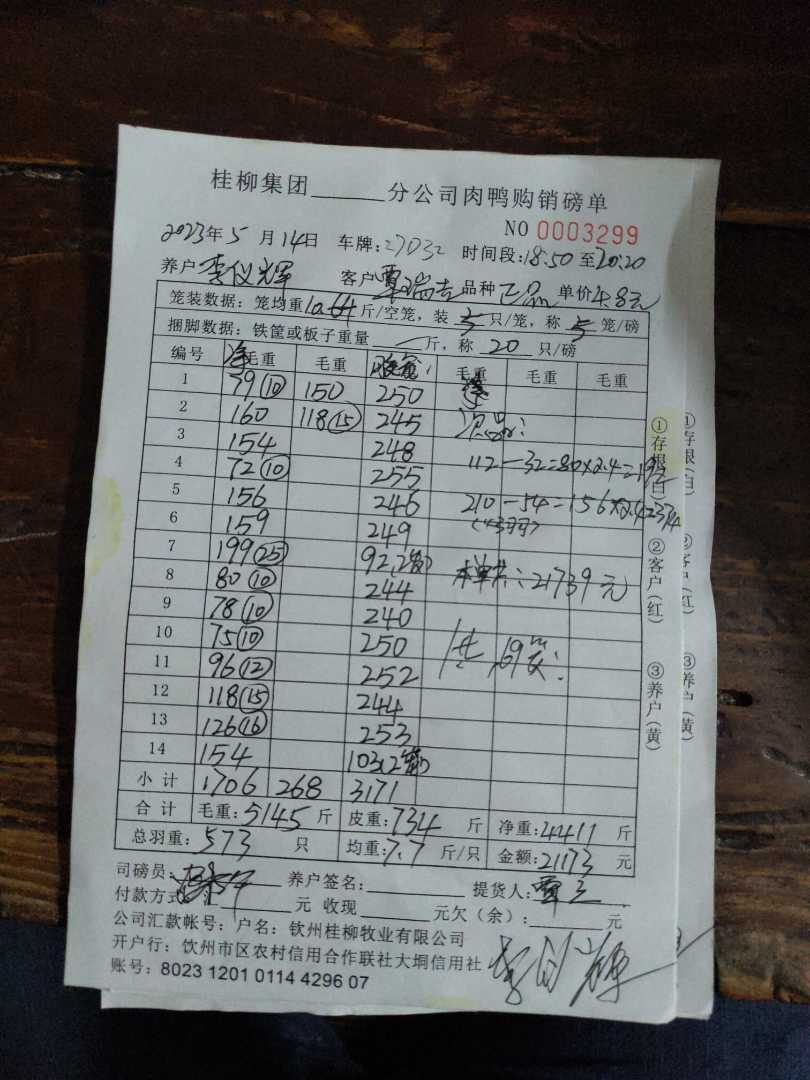 桂柳集团______分公司肉鸭购销磅单
NO 0003299
2023年5月14日 车牌:27032 时间段:18:50至20:20
养户李仪辉 客户覃瑞吉 品种正品 单价4.8元
笼装数据:笼均重10.64斤/空笼,装5只/笼,称5笼/磅
捆脚数据:铁筐或板子重量__斤,称20只/磅
编号 毛重 毛重 毛重 毛重 毛重
1 79(10) 150 250
2 160 118(15) 245 次品:
3 154 248
4 72(10) 255 112-32=80×2.4=192
5 156 246 210-54=156×2.4=374
6 159 249
7 199(25) 92.2
8 80(10) 244 本单共:21739元
9 78(10) 240
10 75(10) 250 共69笼:
11 96(12) 252
12 118(15) 244
13 126(16) 253
14 154 103(2笼)
小计 1706 268 3171
合计 毛重:5145斤 皮重:734斤 净重:4411斤
总羽重:573只 均重:7.7斤/只 金额:21173元
司磅员: 养户签名:______ 提货人:
付款方式 元 收现______元欠(余):______元
公司汇款帐号:户名:钦州桂柳牧业有限公司
开户行:钦州市区农村信用合作联社大垌信用社
账号:8023 1201 0114 4296 07
①存根(白)
②客户(红)
③养户(黄)
①存根(白)
②客户(红)
③养户(黄)